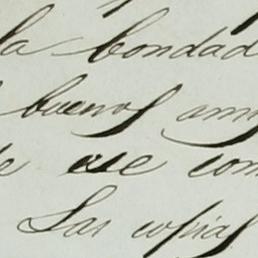 la bondad
buenos am
de ese com
Las copias